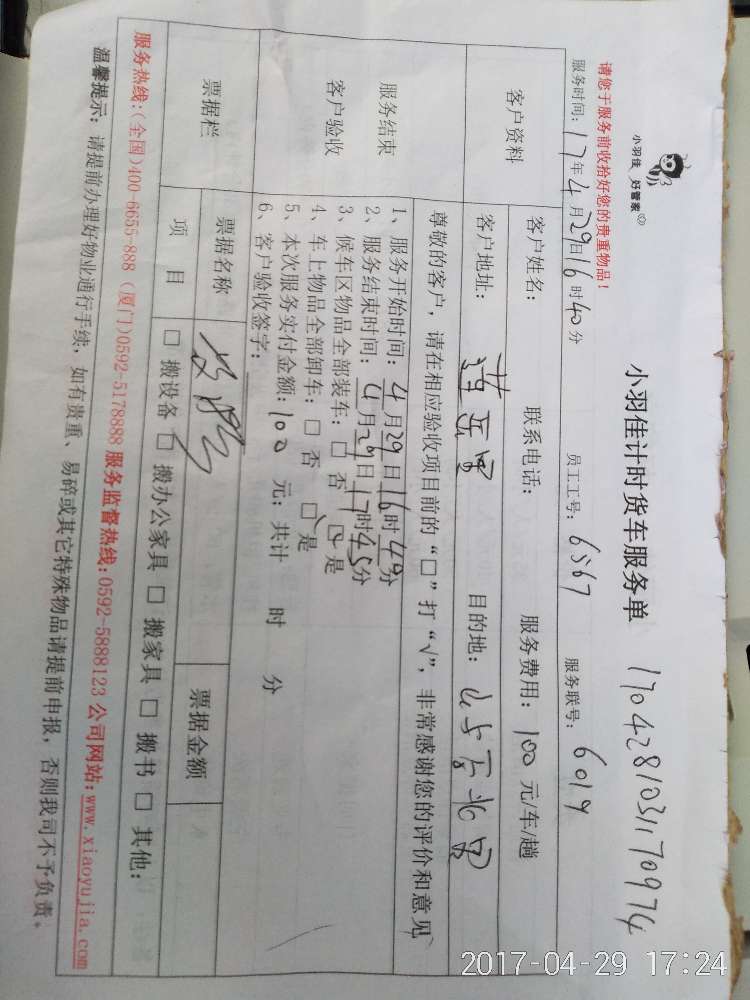 小羽佳 好管家
小羽佳计时货车服务单 170428103170974
请您于服务前收拾好您的贵重物品！
服务时间：17年4月29日16时40分 员工工号：6567 服务联号：6019
客户资料
客户姓名： 联系电话： 服务费用：100元/车/趟
客户地址： 目的地：
尊敬的客户，请在相应验收项目前的“□”打“√”，非常感谢您的评价和意见
服务结束
客户验收
1、服务开始时间：4月29日16时49分
2、服务结束时间：4月29日17时45分
3、候车区物品全部装车：□ 否 □ 是
4、车上物品全部卸车：□ 否 □ 是
5、本次服务实付金额：100元；共计 时 分
6、客户验收签字：
票据栏
票据名称 票据金额
项目 □ 搬设备 □ 搬办公家具 □ 搬家具 □ 搬书 □ 其他：
服务热线：(全国)400-6655-888 (厦门)0592-5178888 服务监督热线：0592-5888123 公司网站：www.xiaoyujia.com
温馨提示：请提前办理好物业通行手续，如有贵重、易碎或其它特殊物品请提前申报，否则我司不予负责。
2017-04-29 17:24